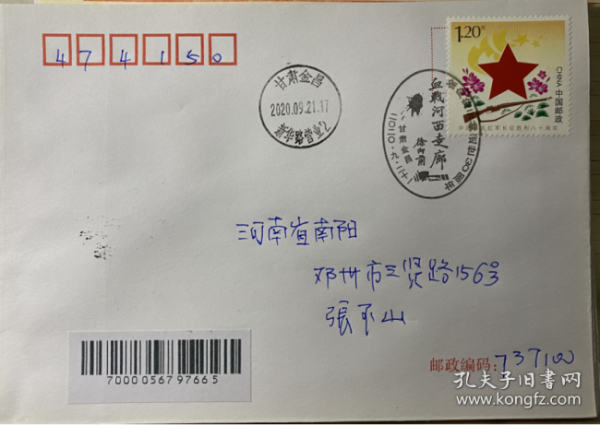 474150
甘肃金昌
2020.09.21.17
新华路营业2
1.20元
CHINA 中国邮政
血战河西走廊
徐向前
甘肃金昌
二〇二〇.九.二十一
河南省南阳
邓州市三贤路156号
張不山
7000056797665
邮政编码:737100
孔夫子旧书网
www.kongfz.com